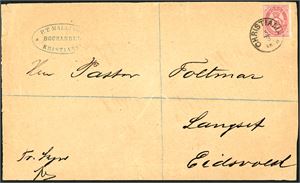 P.T. MALLING
BOGHANDEL
KRISTIANIA
CHRISTIANIA
Herr Pastor Foltmar
Langset
Eidsvold